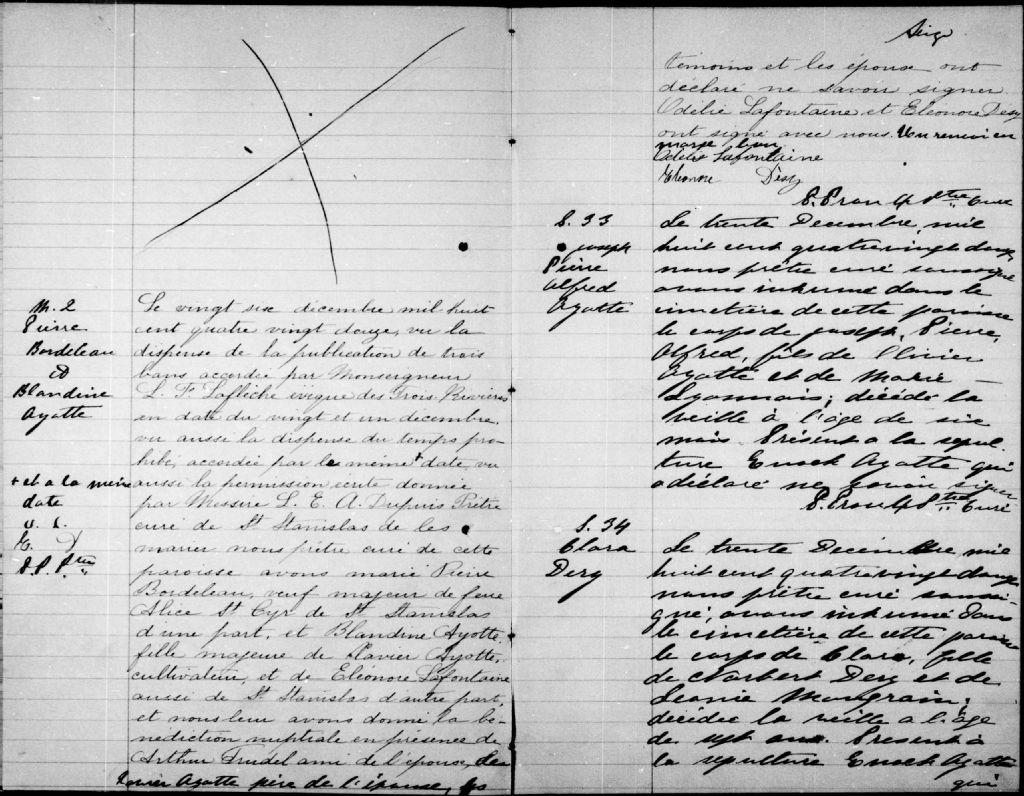 M. 2
Pierre
Bordeleau
et
Blandine
Ayotte
Le vingt six décembre mil huit
cent quatre vingt douze, vu la
dispense de la publication de trois
bans accordée par Monseigneur
L. F. Lafleche évêque des Trois Rivières
en date du vingt et un décembre.
vu aussi la dispense du temps pro-
hibé, accordée par le même + date, vu
aussi la permission écrite donnée
par Messire L. E. A. Dupuis Prêtre
curé de St Stanislas de les
marier nous prêtre curé de cette
paroisse avons marié Pierre
Bordeleau, veuf majeur de feue
Alice St Cyr de St Stanislas
d'une part, et Blandine Ayotte,
fille majeure de Xavier Ayotte,
cultivateur, et de Eléonore Lafontaine
aussi de St Stanislas d'autre part,
et nous leur avons donné la bé-
nediction nuptiale en présence de
Arthur Trudel ami de l'épouse, de
Xavier Ayotte père de l'épouse, les
+ et a la meme
date
O. L.
E. D
P. P. Ptre
témoins et les époux ont
déclaré ne savoir signer
Odélie Lafontaine et Eléonore Désy
ont signé avec nous. Un renvoi en
marge bon
Odélie Lafontaine
Eléonore Désy
Ptre Curé
S. 33
Joseph
Pierre
Alfred
Ayotte
Le trente Decembre, mil
huit cent quatrevingt douze
nous prêtre curé soussigné
avons inhumé dans le
cimetière de cette paroisse
le corps de Joseph, Pierre,
Alfred, fils de Olivier
Ayotte et de Marie
Lyonnais; décédé la
veille à l'âge de six
mois. Présent a la sepul-
ture Enock Ayotte qui
a déclaré ne savoir signer
Ptre Curé
S. 34
Clara
Dery
Le trente Decembre, mil
huit cent quatrevingt douze
nous prêtre curé soussi-
gné, avons inhumé dans
le cimetière de cette paroisse
le corps de Clara, fille
de Norbert Dery et de
Leonie Mongrain;
décédée la veille a l'âge
de sept ans. Present à
la sepulture Enock Ayotte
qui